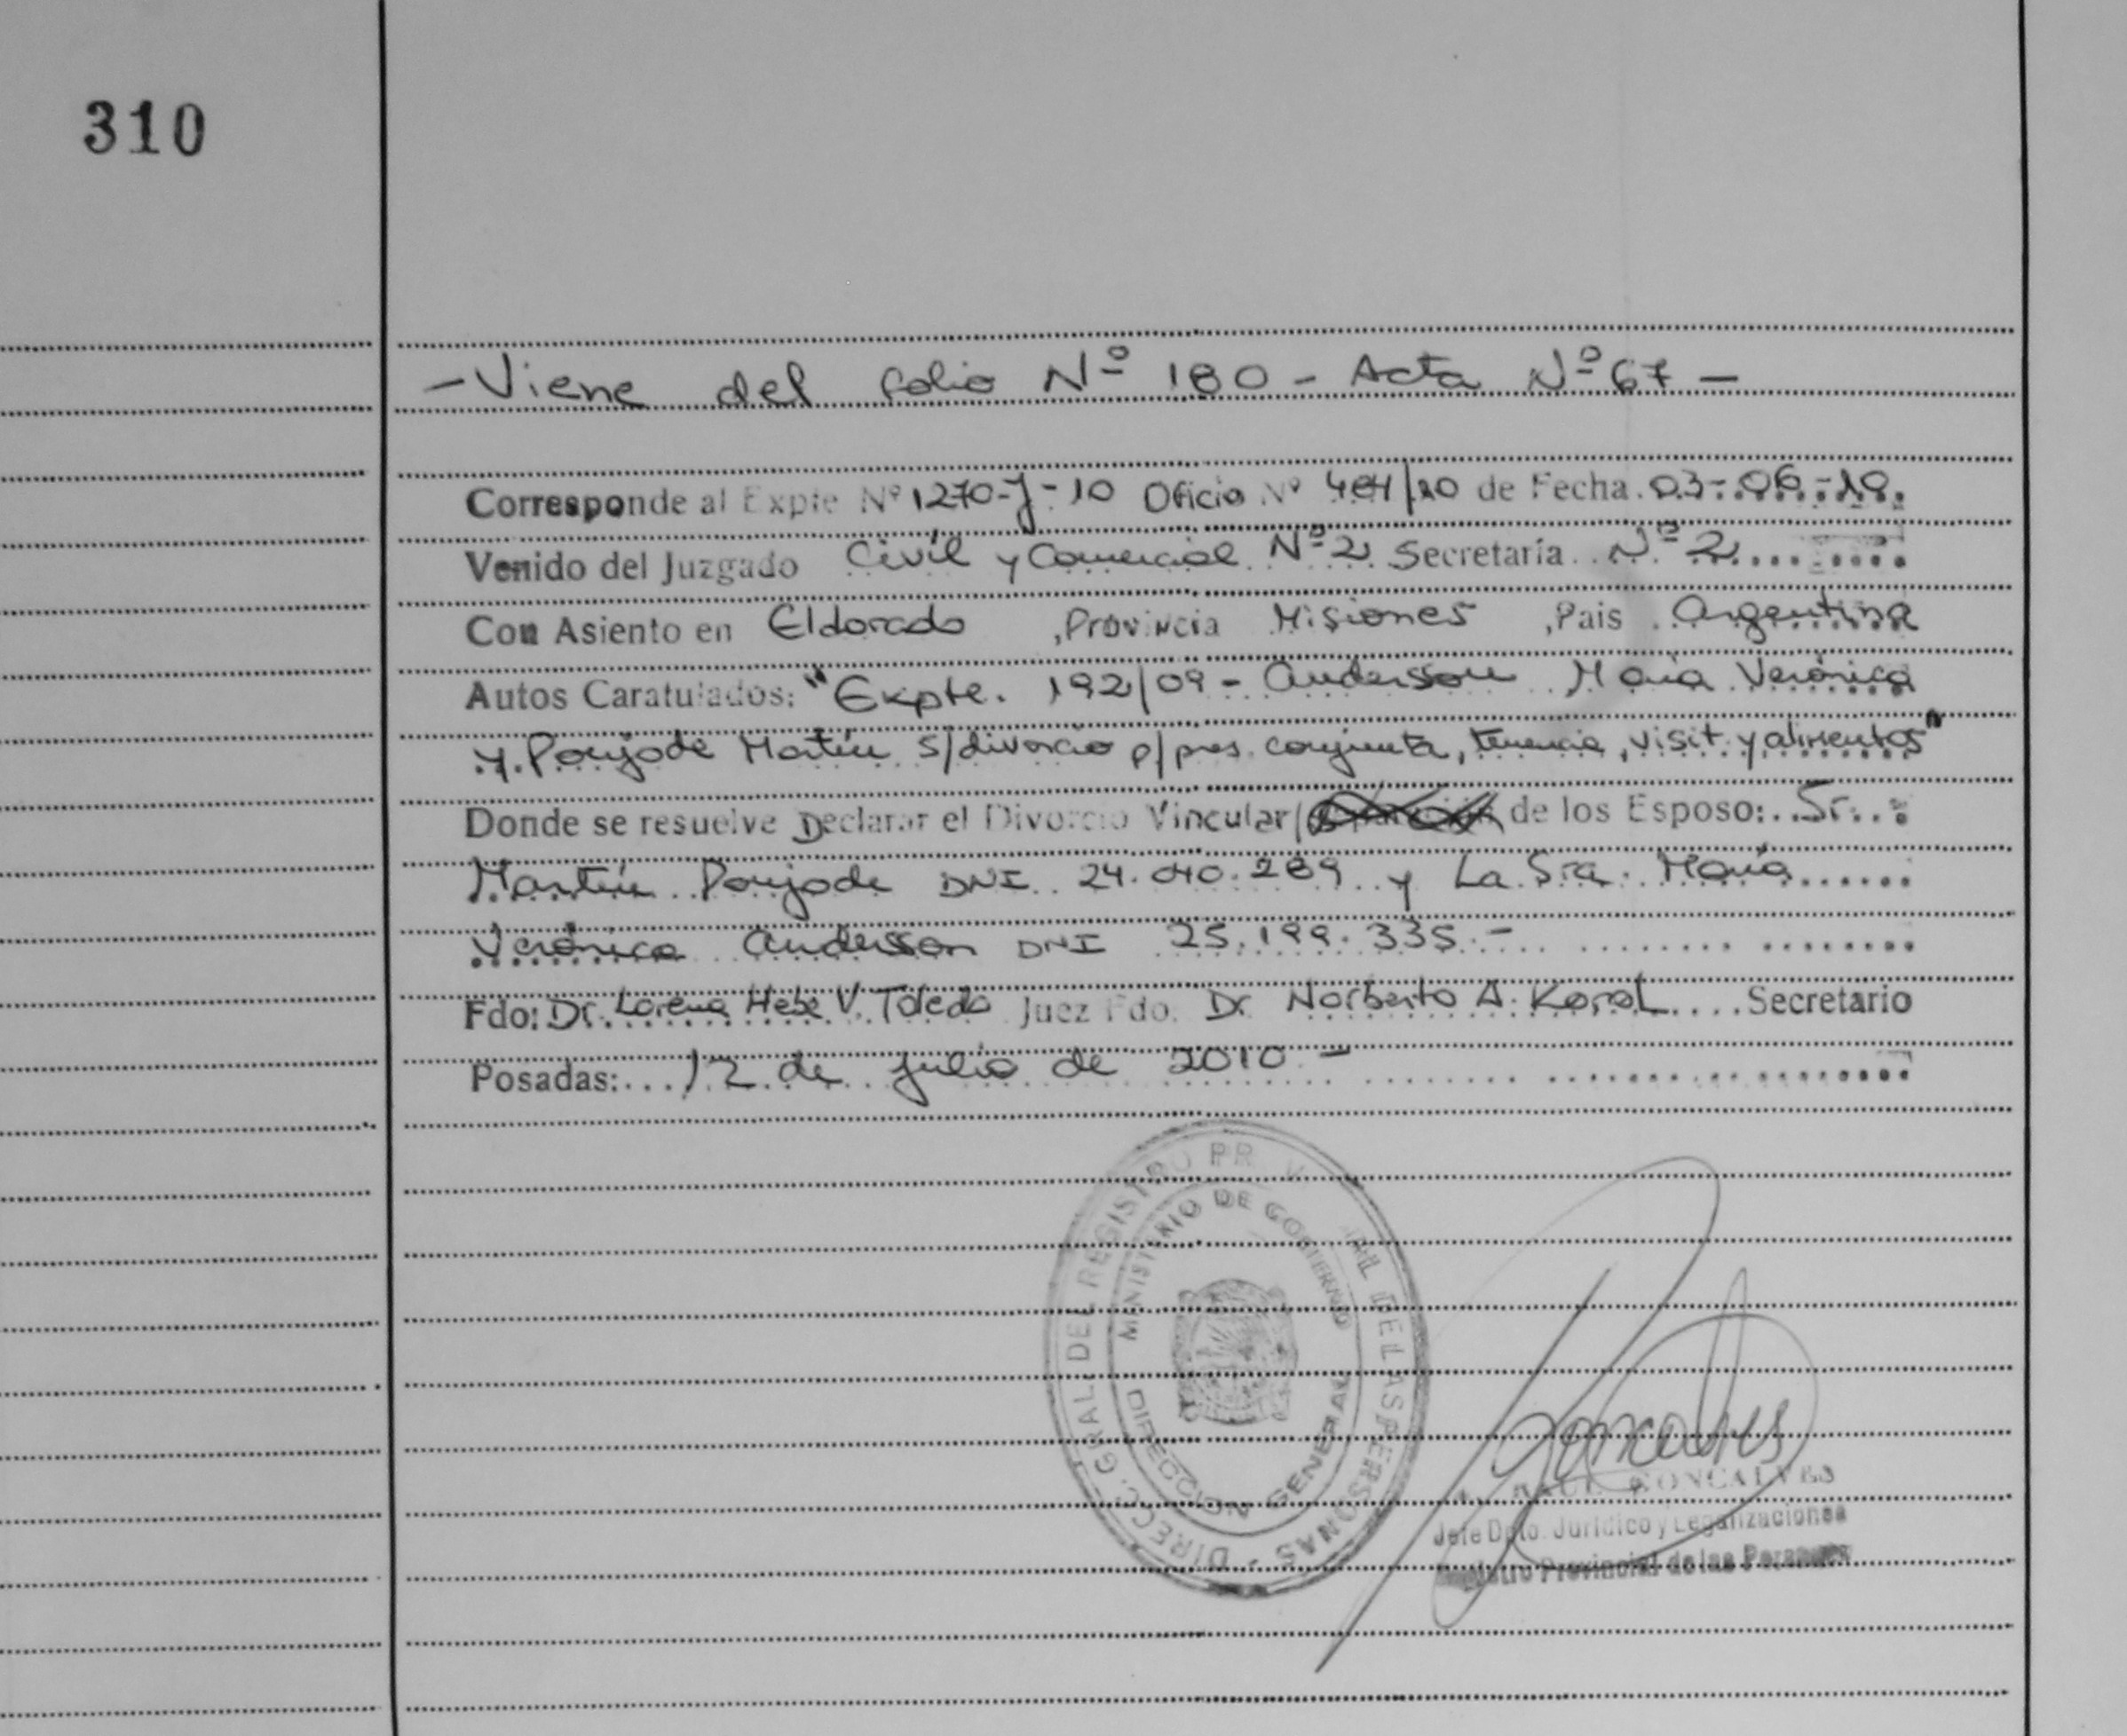 310
- Viene del folio Nº 180 - Acta Nº 67 -
Corresponde al Expte Nº 1270-J-10 Oficio Nº 484/10 de Fecha 03-06-10.
Venido del Juzgado Civil y Comercial Nº 2 Secretaría Nº 2
Con Asiento en Eldorado, Provincia Misiones, Pais Argentina
Autos Caratulados: "Expte. 192/09 - Andersson María Verónica
y Poujade Martín s/divorcio p/pres. conjunta, tenencia, visit. y alimentos"
Donde se resuelve Declarar el Divorcio Vincular/ de los Esposo: Sr.
Martín Poujade DNI 24.040.289 y La Sra. María
Verónica Andersson DNI 25.199.335.-
Fdo: Dr. Lorena Hebe V. Toledo Juez Fdo. Dr Norberto A. Korol Secretario
Posadas: 12 de julio de 2010 -
DIRECC. GRAL DE REGISTRO PROV DE LAS PERSONAS -
MINISTERIO DE GOBIERNO
DIRECCION GENERAL
GONCALVES
Jefe Dpto. Jurídico y Legalizaciones
Registro Provincial de las Personas